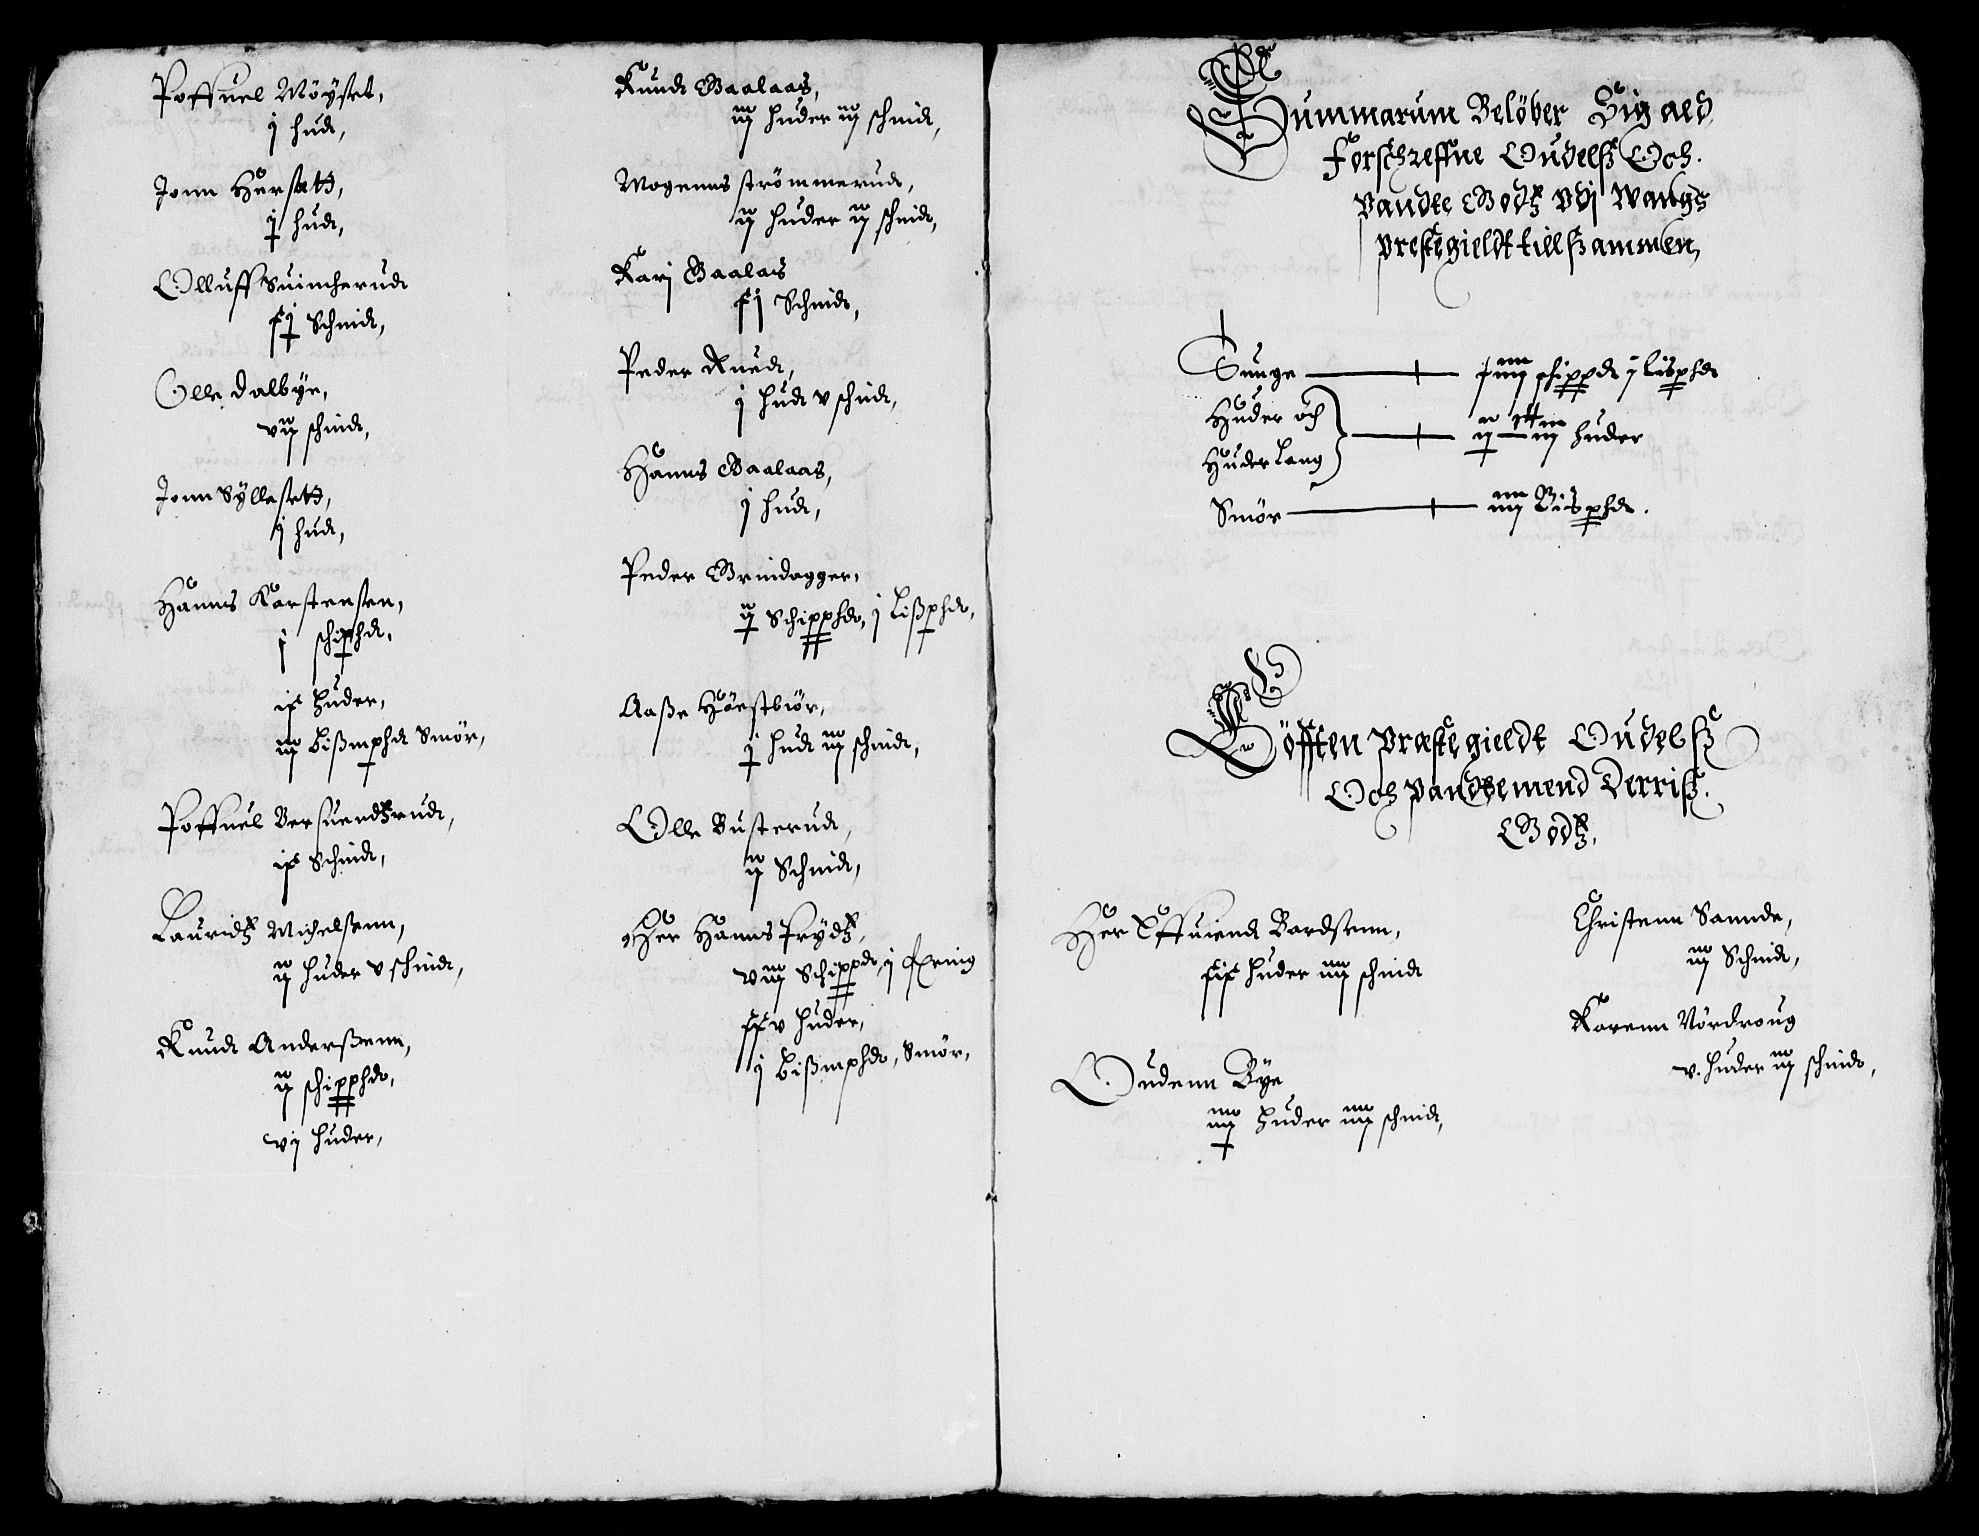 Poffuel Möÿset,
j hud,
Jonn Hersett,
j hud,
Olluff Suincherud
xj Schind,
Olle dalbÿe,
vij schind,
Jonn Sÿllesett,
j hud,
Hanns Karstensen,
j schiphd,
ix huder,
iij Bißmphd Smör,
Poffuel Bersuendtzrud,
ix Schind,
Lauridtz Michelßenn,
ij huder v schind,
Knud Anderßenn,
ij schipphd,
vj huder,
Knud Baalaas,
iij huder iij schind,
Mogenns strömmerud,
ij huder ij schind,
Karj Baalas
xj Schind,
Peder Rued,
j hud v schid,
Hanns Baalaas,
j hud,
Peder Grindagger,
ij Schipphd, j Lißphd,
Aaße Höestbiör,
j hud iij schind,
Olle Busterud,
ij Schind,
Her Hanns Frÿdtz,
viij Schippd, j fering
xxv huder,
j Bißmphd, Smör,
Summarum Belöber Sig aed
Forschreffne Oudelß Och
Pandte Godtz vdj Wangs
prestegieldt till ßammen,
Tunge — schippd j Lisphd
Huder och
Huder Lang — huder
Smör — iiij Bisphd.
Löfften præstegieldt Oudelß
Och pandtemend Derriß
Godtz,
Her Effuiend Bardsenn,
xix huder iiij schind
Oudenn Bÿe
iiij huder iiij schind,
Christenn Sannde,
iij Schind,
Karenn Nördroug
v. huder iij schind,